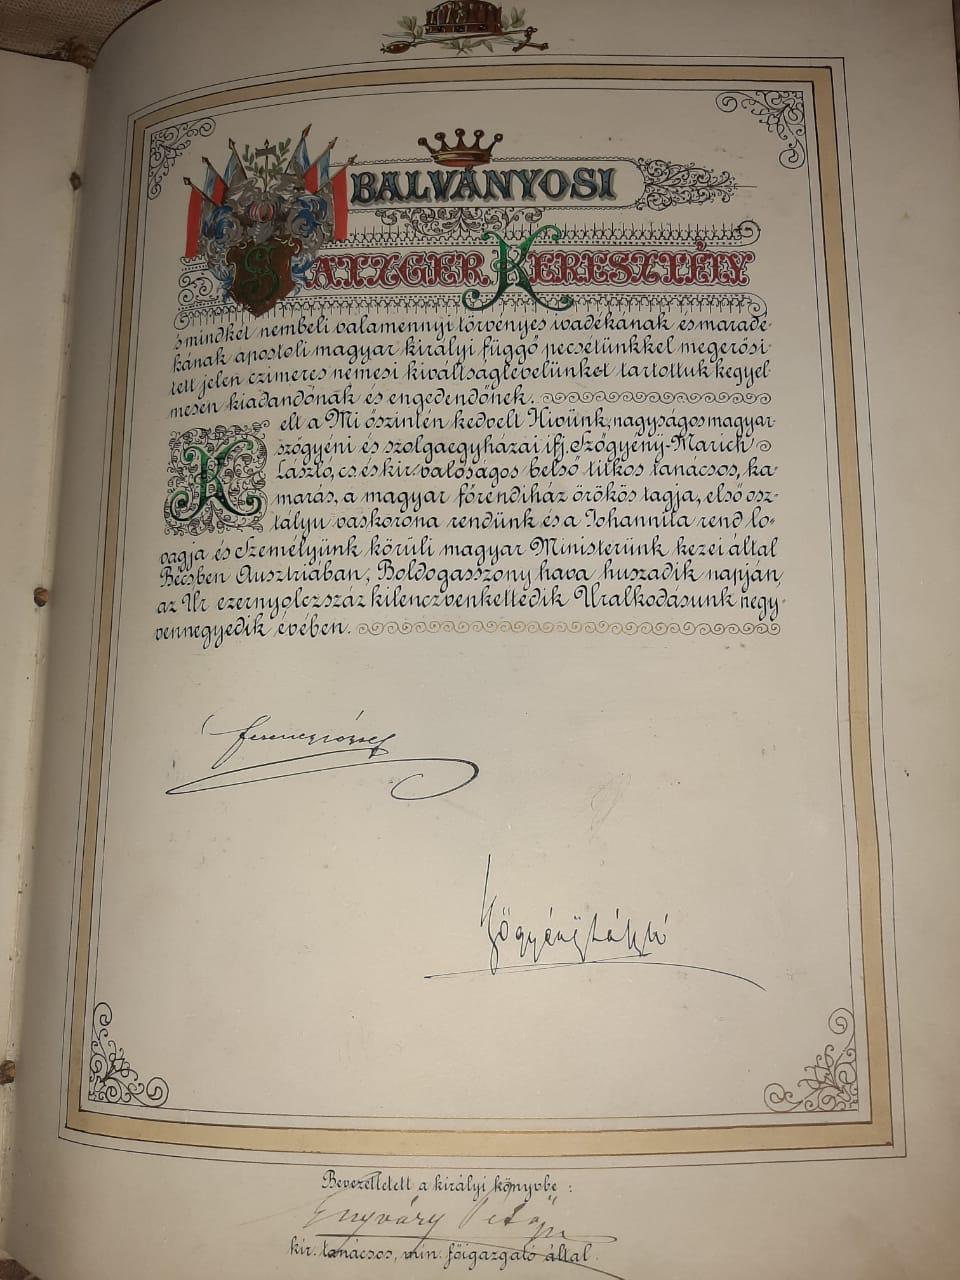 BALVÁNYOSI
SATZGER KERESZTÉLY
s mindkét nembeli valamennyi törvényes ivadékának és maradé-
kának apostoli magyar királyi függő pecsétünkkel megerősi-
tett jelen czimeres nemesi kiváltságlevelünket tartottuk kegyel-
mesen kiadandónak és engedendőnek.
Kelt a Mi őszintén kedvelt Hivünk, nagyságos magyar-
szögyéni és szolgaegyházai ifj. Szögyény-Marich
László, cs és kir valóságos belső titkos tanácsos, ka-
marás, a magyar főrendiház örökös tagja, első osz-
tályu vaskorona rendünk és a Johannita rend lo-
vagja és Személyünk körüli magyar Ministerünk kezei által
Bécsben Ausztriában, Boldogasszony hava huszadik napján,
az Ur ezernyolczszáz kilenczvenkettedik Uralkodásunk negy-
vennegyedik évében.
Ferencz József
Szögyény László
Bevezettetett a királyi könyvbe:
kir. tanácsos, min. főigazgató által.